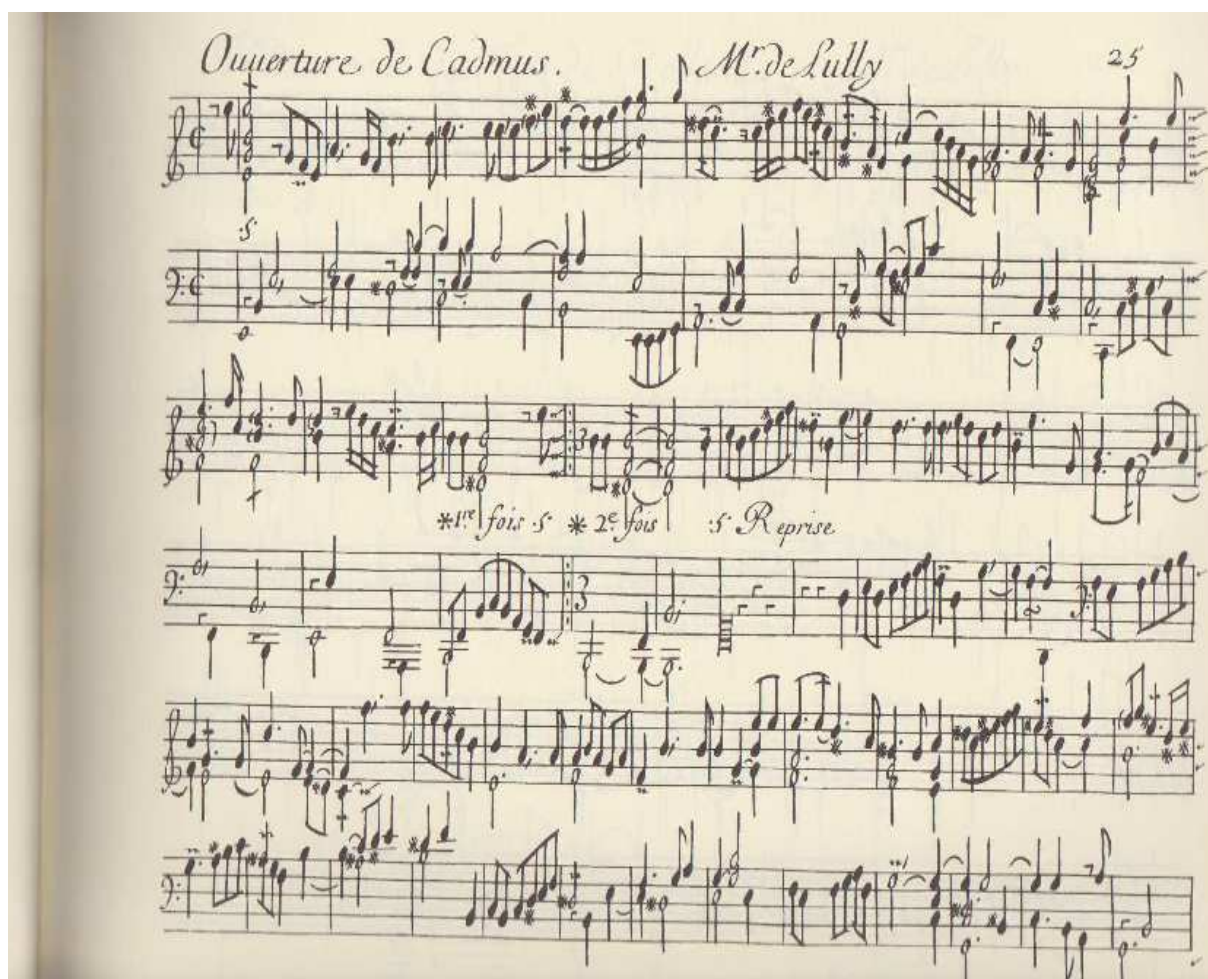 Ouuerture de Cadmus. Mr. de Lully 25
1re fois 2e fois Reprise